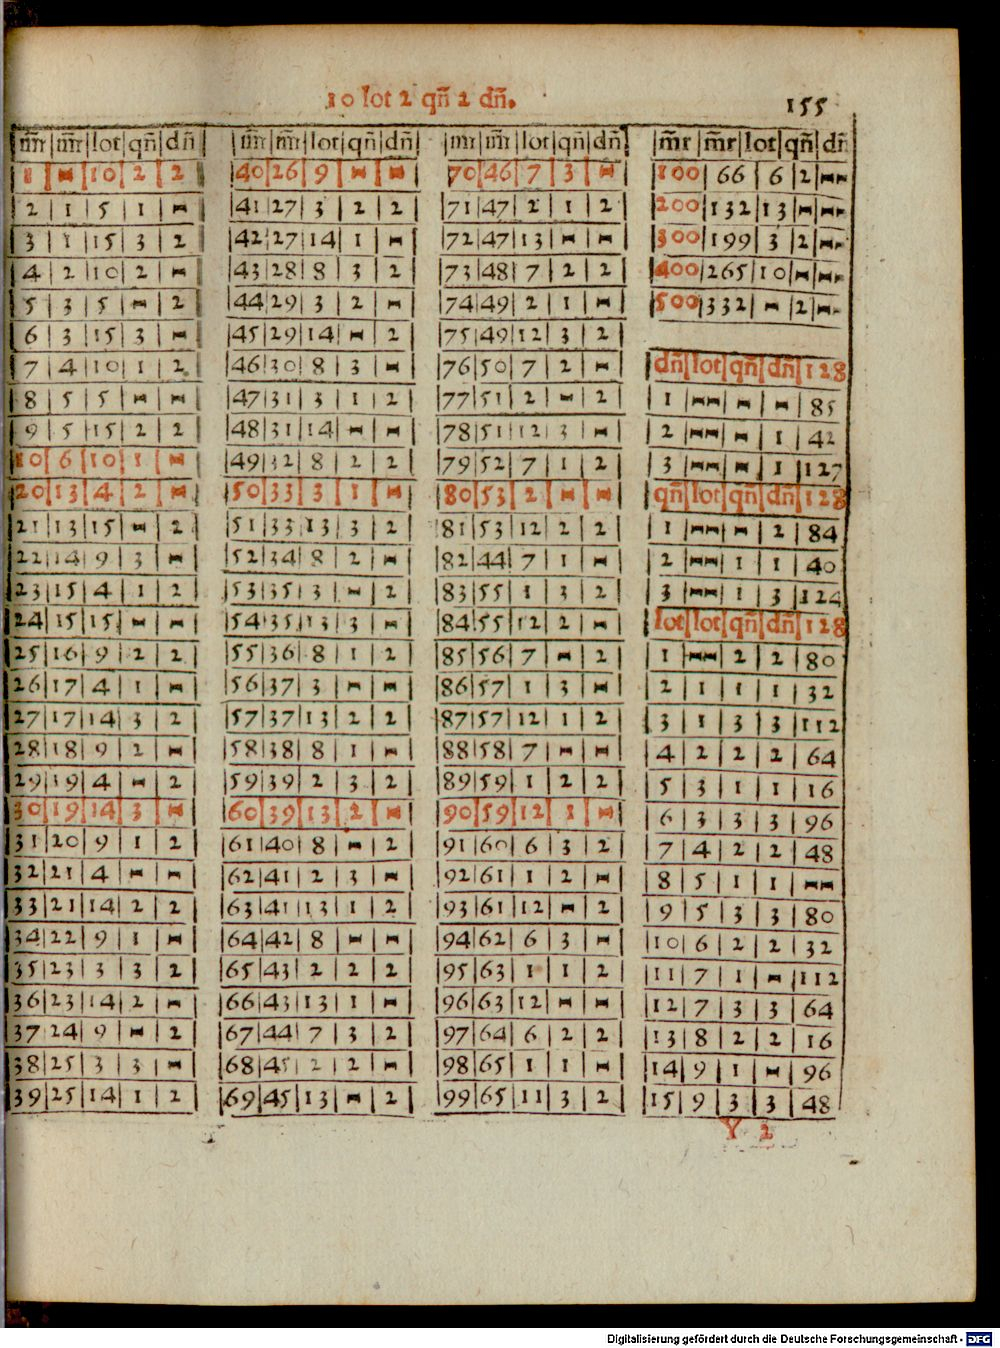 10 lot 2 qñ 2 dñ.
155
m̃r|m̃r|lot|qñ|dñ
1|-|10|2|2
2|1|5|1|-
3|1|15|3|2
4|2|10|2|-
5|3|5|-|2
6|3|15|3|-
7|4|10|1|2
8|5|5|-|-
9|5|15|2|2
10|6|10|1|-
20|13|4|2|-
21|13|15|-|2
22|14|9|3|-
23|15|4|1|2
24|15|15|-|-
25|16|9|2|2
26|17|4|1|-
27|17|14|3|2
28|18|9|2|-
29|19|4|-|2
30|19|14|3|-
31|20|9|1|2
32|21|4|-|-
33|21|14|2|2
34|22|9|1|-
35|23|3|3|2
36|23|14|2|-
37|24|9|-|2
38|25|3|3|-
39|25|14|1|2
m̃r|m̃r|lot|qñ|dñ
40|26|9|-|-
41|27|3|2|2
42|27|14|1|-
43|28|8|3|2
44|29|3|2|-
45|29|14|-|2
46|30|8|3|-
47|31|3|1|2
48|31|14|-|-
49|32|8|2|2
50|33|3|1|-
51|33|13|3|2
52|34|8|2|-
53|35|3|-|2
54|35|13|3|-
55|36|8|1|2
56|37|3|-|-
57|37|13|2|2
58|38|8|1|-
59|39|2|3|2
60|39|13|2|-
61|40|8|-|2
62|41|2|3|-
63|41|13|1|2
64|42|8|-|-
65|43|2|2|2
66|43|13|1|-
67|44|7|3|2
68|45|2|2|-
69|45|13|-|2
m̃r|m̃r|lot|qñ|dñ
70|46|7|3|-
71|47|2|1|2
72|47|13|-|-
73|48|7|2|2
74|49|2|1|-
75|49|12|3|2
76|50|7|2|-
77|51|2|-|2
78|51|12|3|-
79|52|7|1|2
80|53|2|-|-
81|53|12|2|2
82|44|7|1|-
83|55|1|3|2
84|55|12|2|-
85|56|7|-|2
86|57|1|3|-
87|57|12|1|2
88|58|7|-|-
89|59|1|2|2
90|59|12|1|-
91|60|6|3|2
92|61|1|2|-
93|61|12|-|2
94|62|6|3|-
95|63|1|1|2
96|63|12|-|-
97|64|6|2|2
98|65|1|1|-
99|65|11|3|2
m̃r|m̃r|lot|qñ|dñ
100|66|6|2|--
200|132|13|-|--
300|199|3|2|--
400|265|10|-|--
500|332|-|2|--
dñ|lot|qñ|dñ|128
1|--|-|-|85
2|--|-|1|42
3|--|-|1|127
qñ|lot|qñ|dñ|128
1|--|-|2|84
2|--|1|1|40
3|--|1|3|124
lot|lot|qñ|dñ|128
1|--|2|2|80
2|1|1|1|32
3|1|3|3|112
4|2|2|2|64
5|3|1|1|16
6|3|3|3|96
7|4|2|2|48
8|5|1|1|--
9|5|3|3|80
10|6|2|2|32
11|7|1|-|112
12|7|3|3|64
13|8|2|2|16
14|9|1|-|96
15|9|3|3|48
Y 2
Digitalisierung gefördert durch die Deutsche Forschungsgemeinschaft - DFG